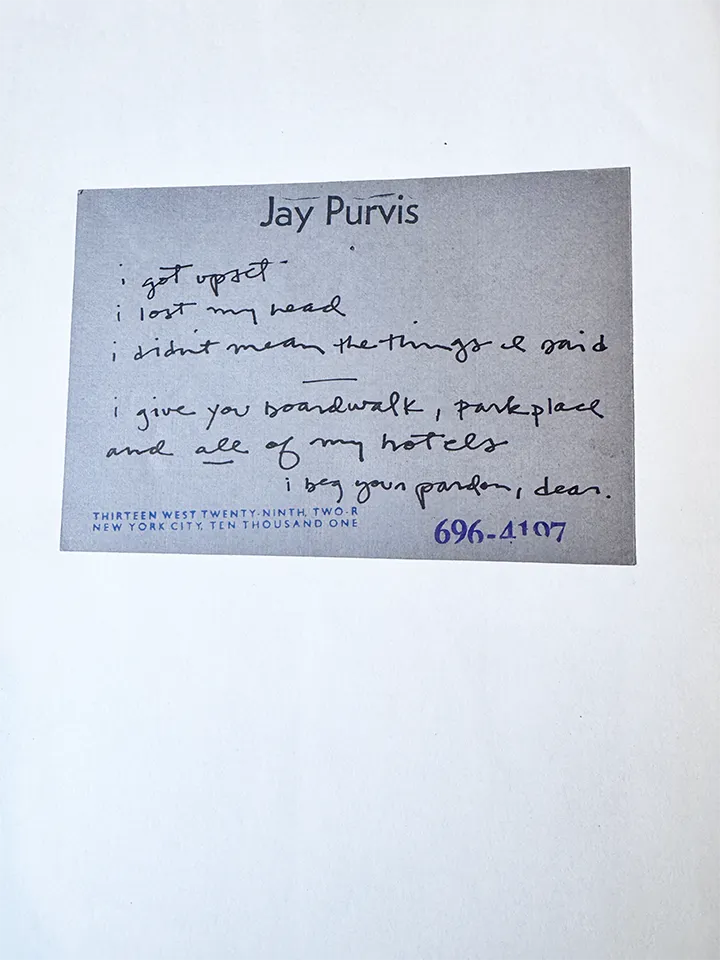 Jay Purvis
i got upset
i lost my head
i didn't mean the things I said
i give you boardwalk, park place
and all of my hotels
i beg your pardon, dear.
THIRTEEN WEST TWENTY-NINTH, TWO-R
NEW YORK CITY, TEN THOUSAND ONE
696-4107